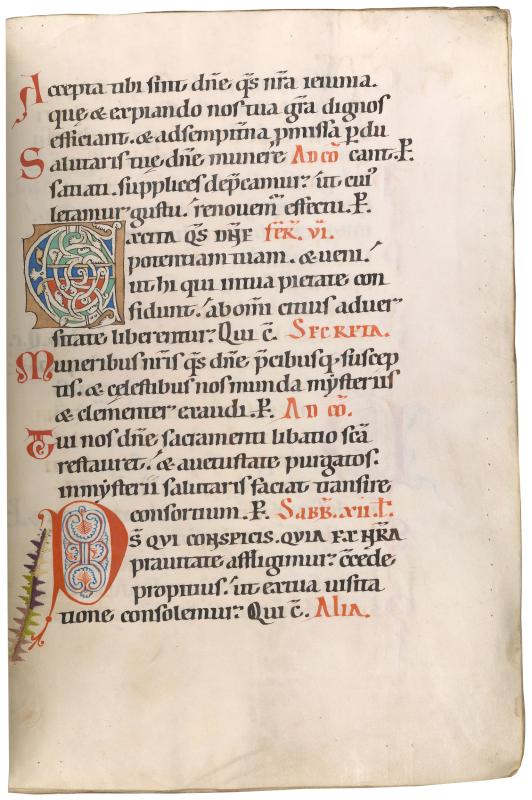 Accepta tibi sint dñe q̃s nr̃a ieiunia.
que & expiando nos tua gr̃a dignos
efficiant. & ad sempit̃na p̱missa p̱du
Salutaris tue dñe munere Ad cõ cant. P̱.
satiati. supplices dep̃camur. ut cui᾿
letamur gustu. renouem̃ effectu. P̱.
EXCITA Q̃S DÑE fer̃. vi.
potentiam tuam. & ueni.
ut hi qui in tua pietate con
fidunt. ab om̃i citius aduer
sitate liberentur. Qui c̃. Secreta.
Muneribus nr̃is q̃s dñe p̃cibusq; suscep
tis. & celestibus nos munda mẏsteriis
& clementer exaudi. P̱. Ad cõ.
Tui nos dñe sacramenti libatio sc̃a
restauret. & a uetustate purgatos.
in mẏsterii salutaris faciat transire
consortium. P̱. Sabb̃. xii. l̃.
DS̃ QUI CONSPICIS. QUIA EX NR̃A
prauitate affligimur. c̃cede
propitius. ut ex tua uisita
tione consolemur. Qui c̃. Alia.